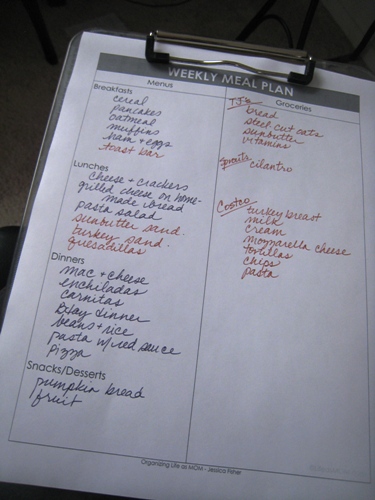 WEEKLY MEAL PLAN
Menus
Breakfasts
cereal
pancakes
oatmeal
muffins
ham + eggs
toast bar
Lunches
cheese + crackers
grilled cheese on home-
made bread
pasta salad
sunbutter sand.
turkey sand.
quesadillas
Dinners
mac + cheese
enchiladas
carnitas
Bday dinner
beans + rice
pasta w/red sauce
pizza
Snacks/Desserts
pumpkin bread
fruit
Groceries
TJ's
bread
steel cut oats
sunbutter
vitamins
Sprouts cilantro
Costco
turkey breast
milk
cream
mozzarella cheese
tortillas
chips
pasta
Organizing Life as MOM - Jessica Fisher